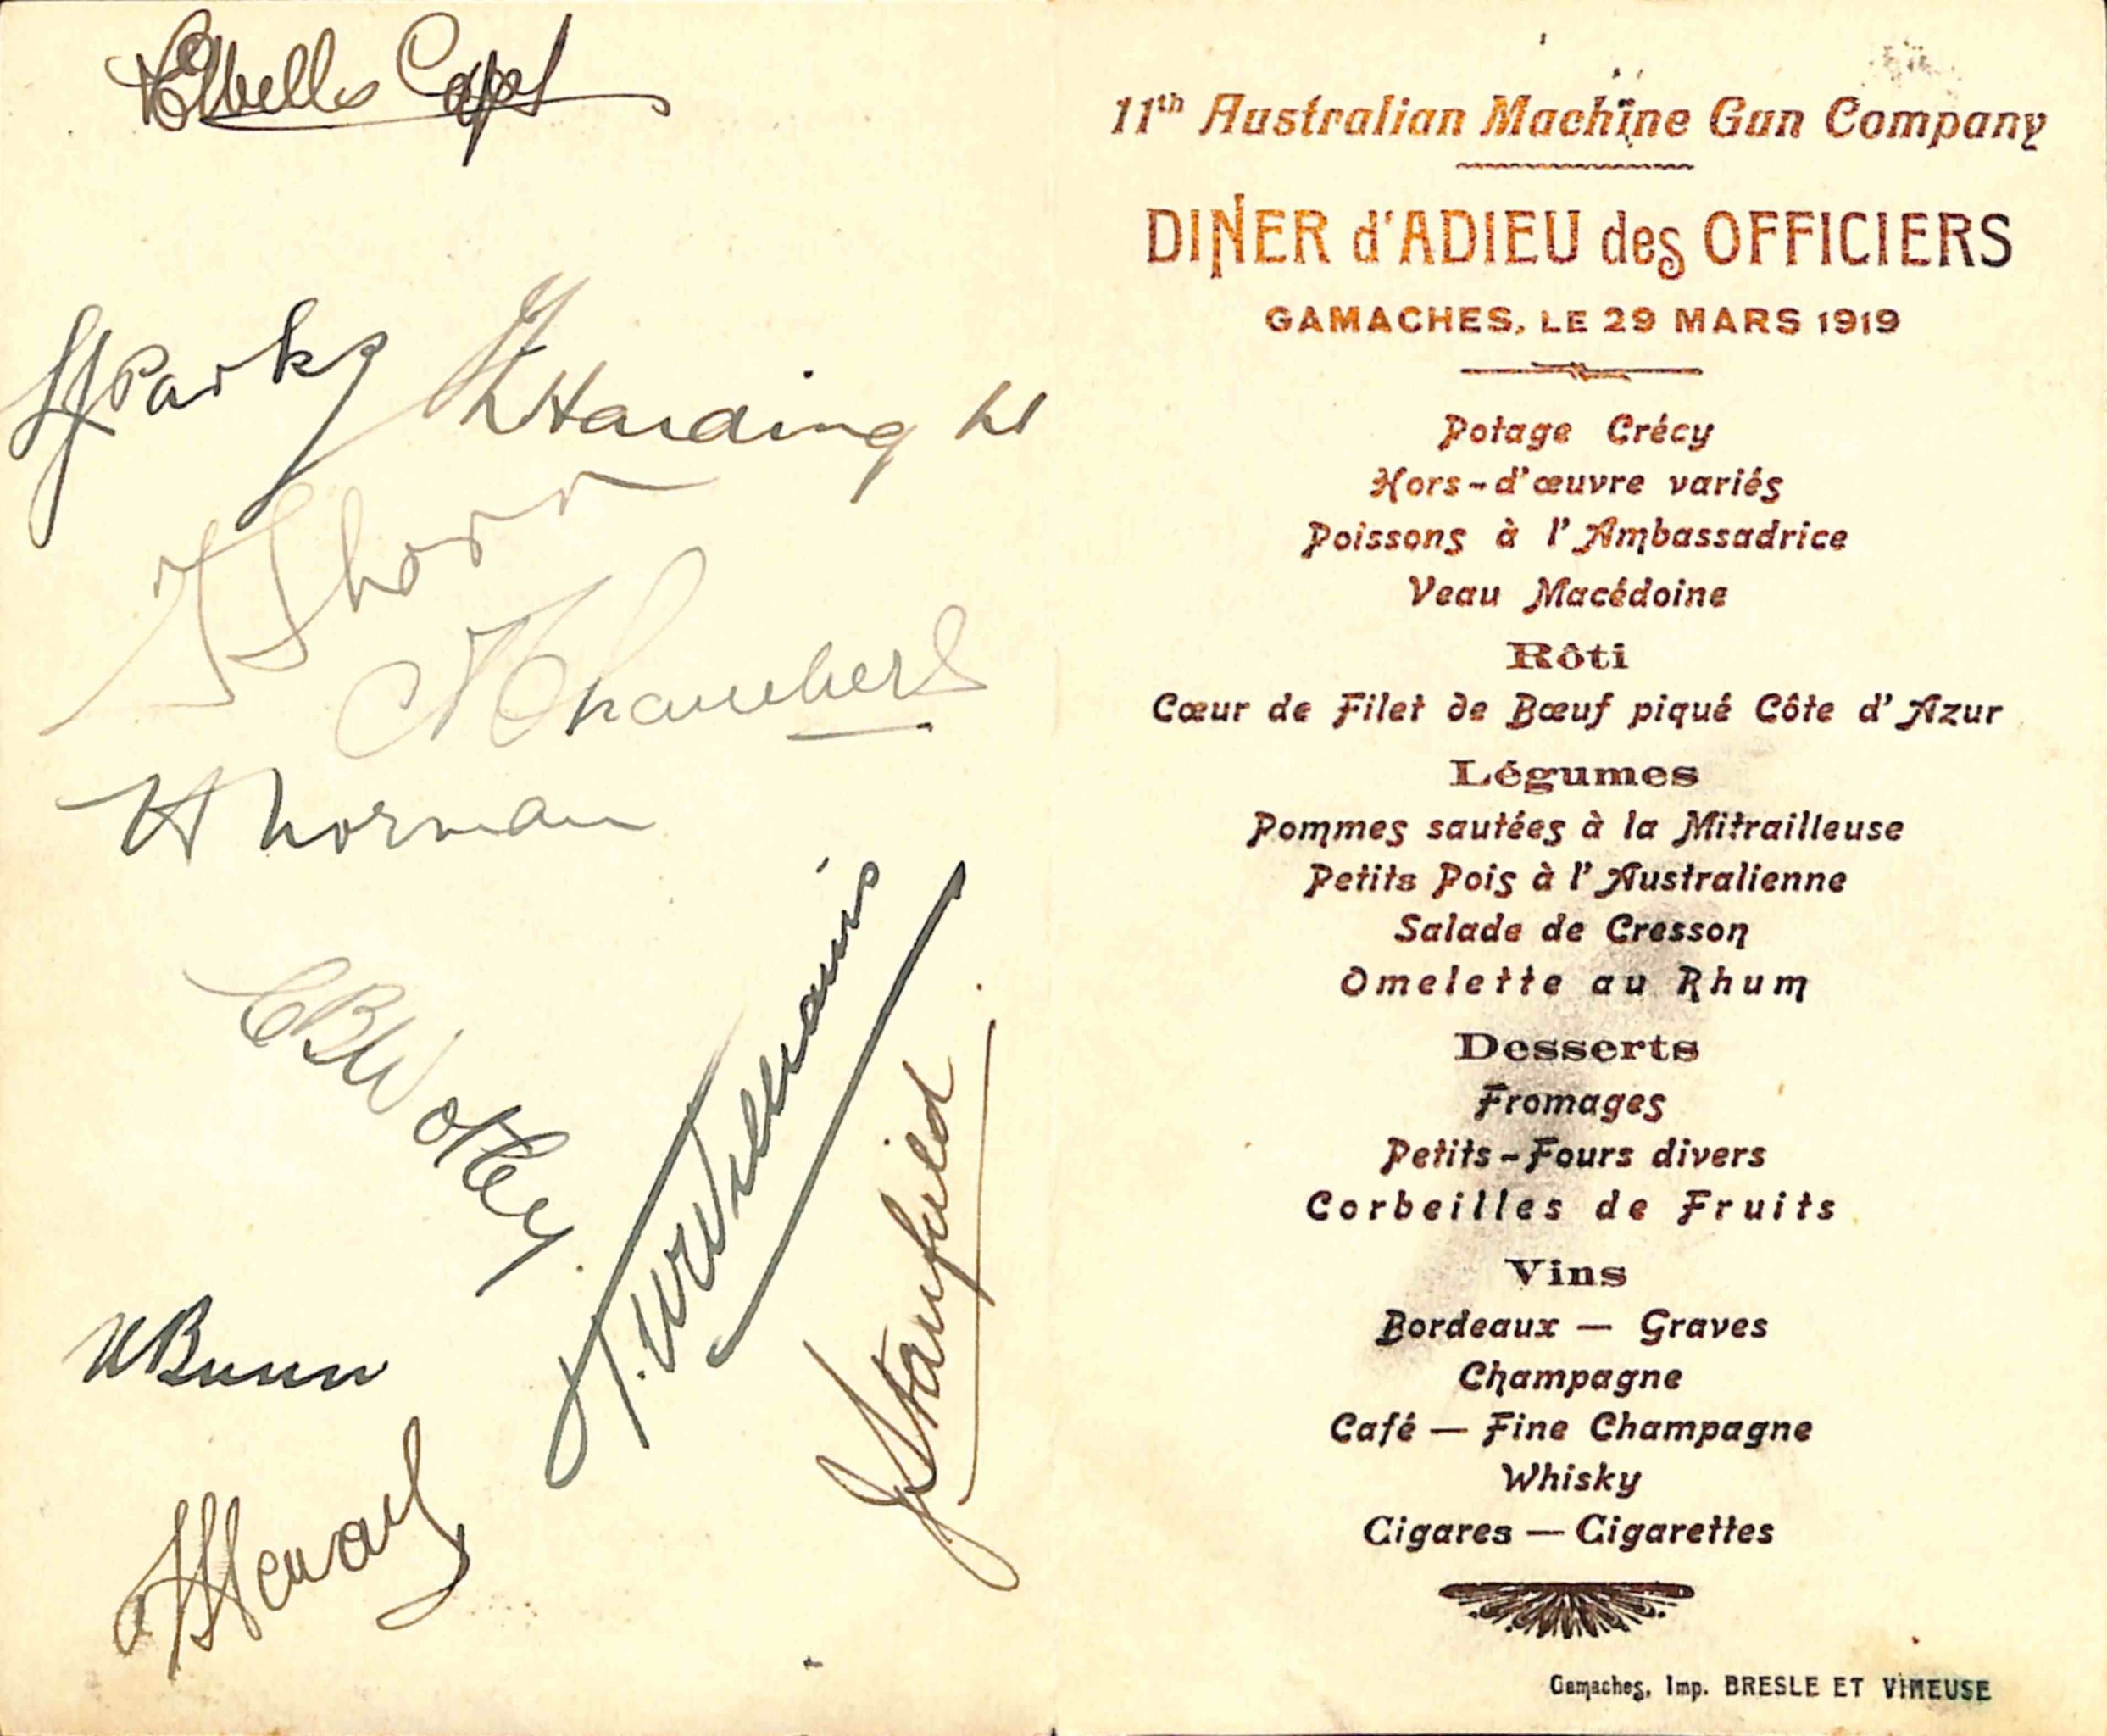 Capt
Sparks
Harding Lt
Short
Chambers
H Norman
CB Wolley
T. W Williams
J Stanfield
W Bunn
11th Australian Machine Gun Company
DINER d'ADIEU des OFFICIERS
GAMACHES, LE 29 MARS 1919
Potage Crécy
Hors-d'œuvre variés
Poissons à l'Ambassadrice
Veau Macédoine
Rôti
Cœur de Filet de Bœuf piqué Côte d'Azur
Légumes
Pommes sautées à la Mitrailleuse
Petits Pois à l'Australienne
Salade de Cresson
Omelette au Rhum
Desserts
Fromages
Petits-Fours divers
Corbeilles de Fruits
Vins
Bordeaux — Graves
Champagne
Café — Fine Champagne
Whisky
Cigares — Cigarettes
Gamaches, Imp. BRESLE ET VIMEUSE